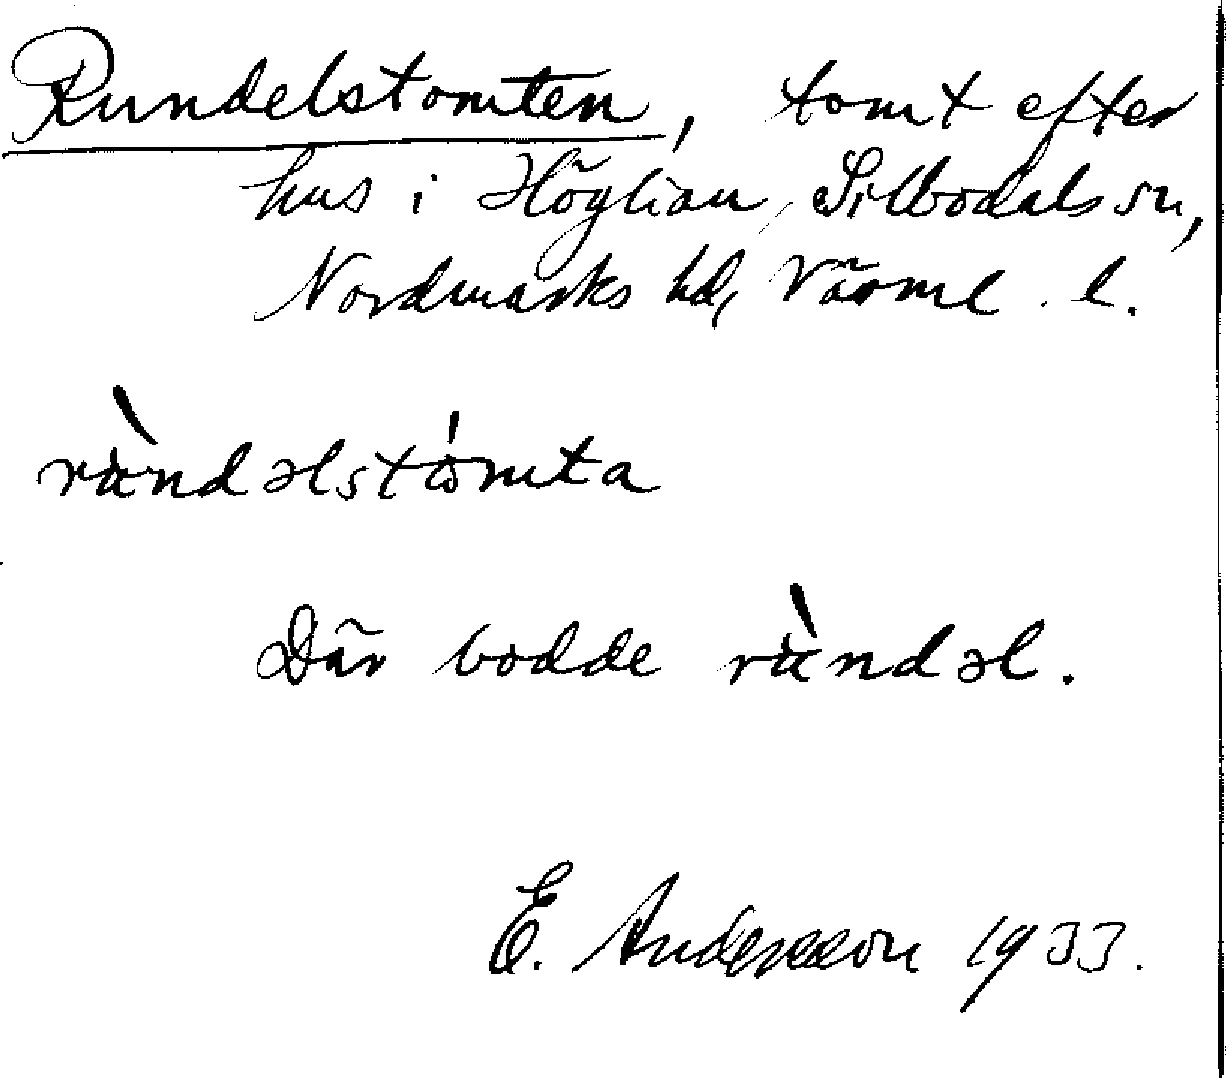 Rundelstomten, tomt efter
hus i Höglian, Silbodals sn,
Nordmarks hd, Värml. l.
rùndəlstómta
Där bodde rùndəl.
E. Andersson 1933.